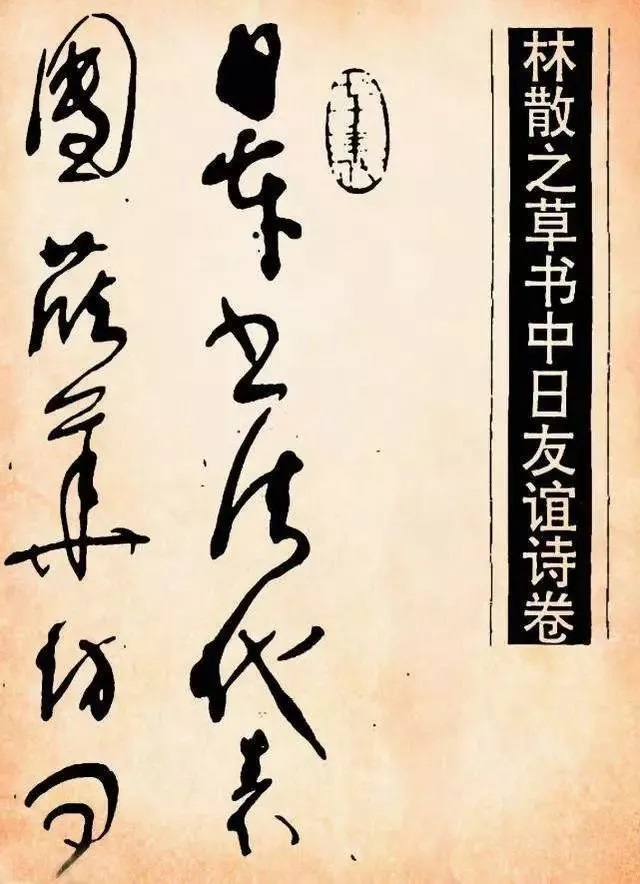 林散之草书中日友谊诗卷
日本书法代表
團蒞華访问